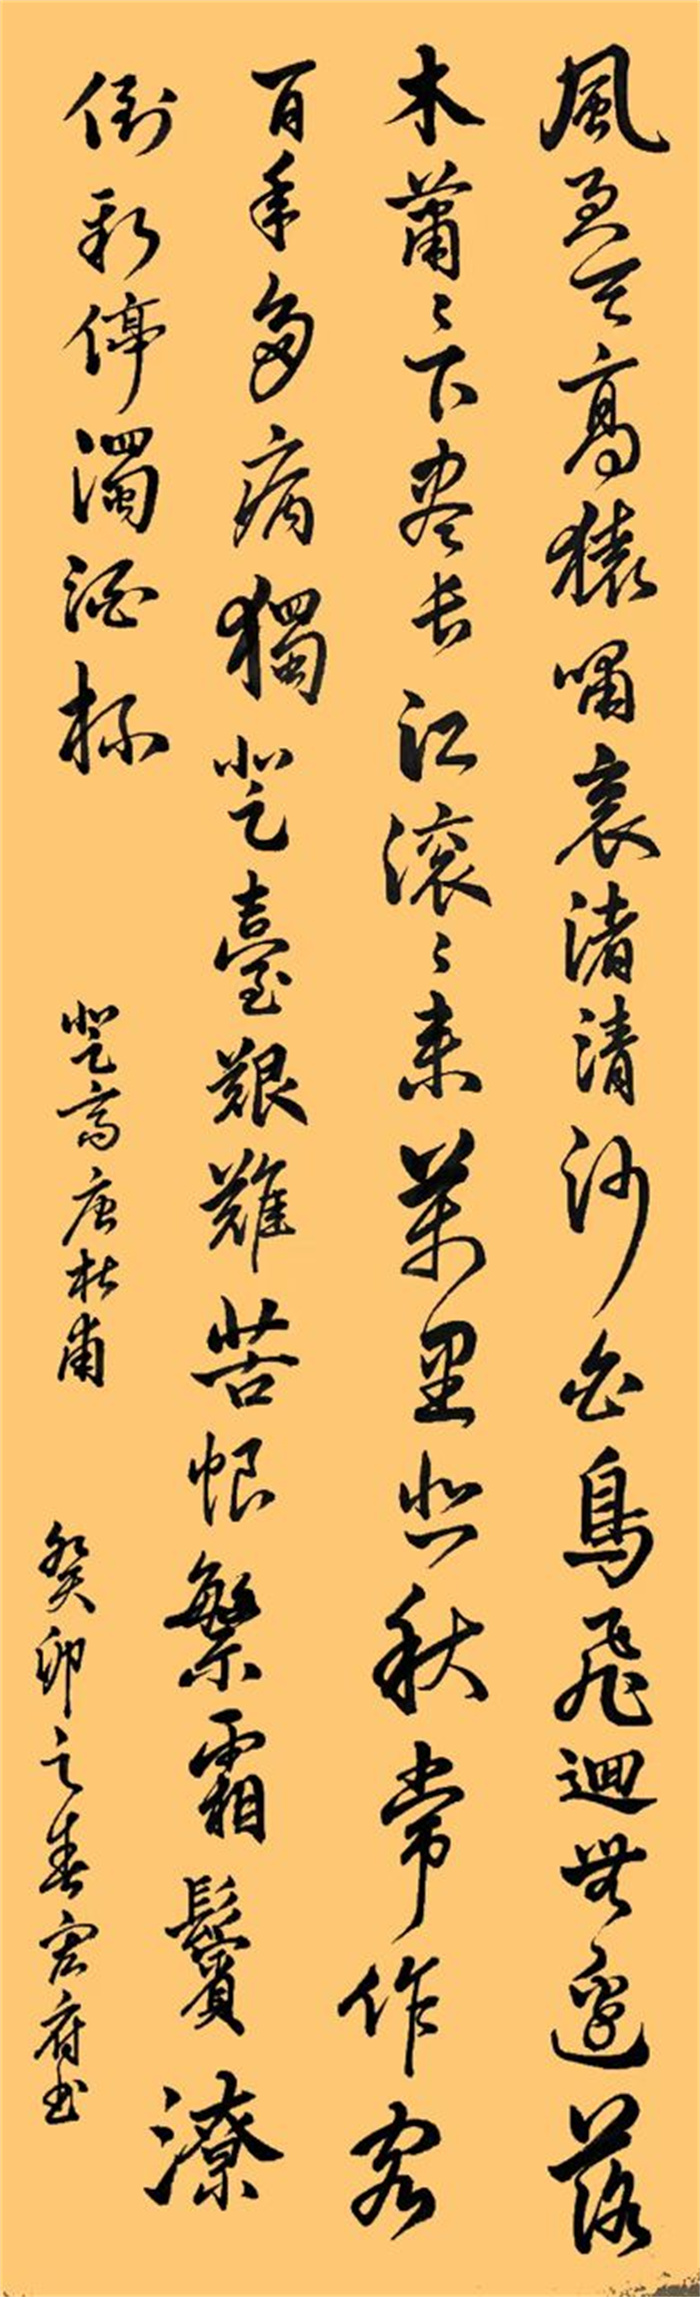 風急天高猿嘯哀渚清沙白鳥飛迴無邊落
木蕭〻下尽长江滚〻来萬里悲秋常作客
百年多病獨登臺艱難苦恨繁霜鬢潦
倒新停濁酒杯
登高唐杜甫
癸卯之春宏府书